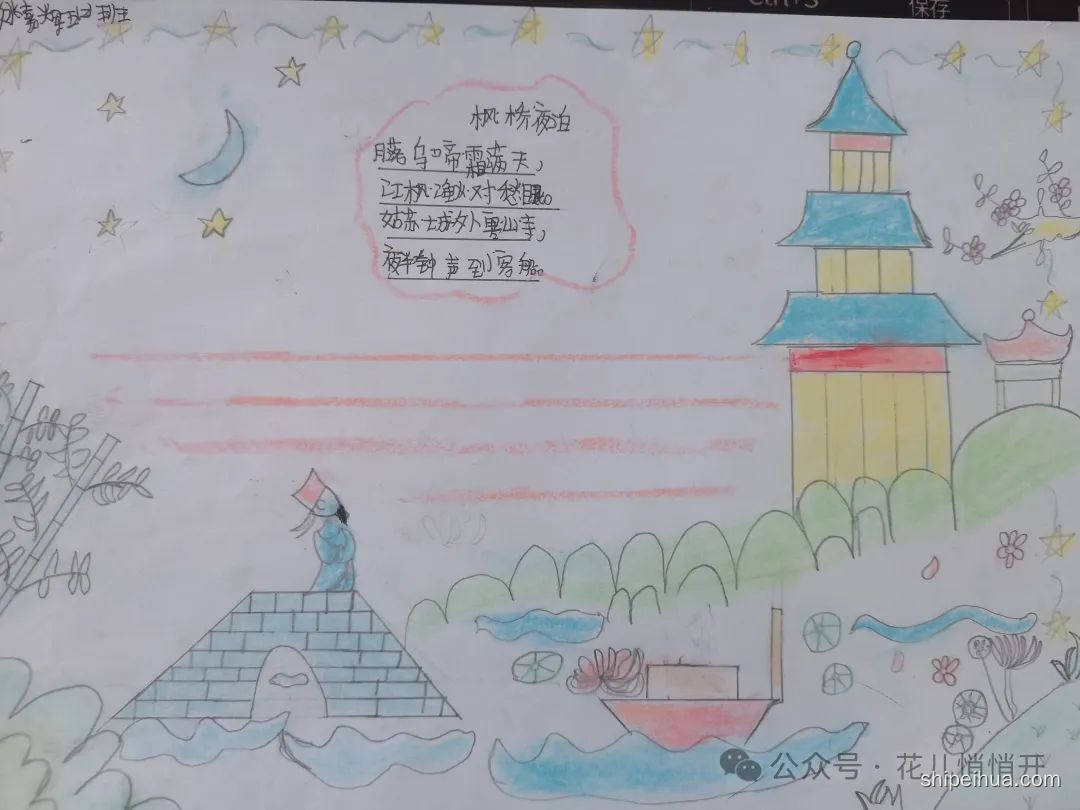 Ctrl+S
保存
枫桥夜泊
月落乌啼霜满天,
江枫渔火对愁眠。
姑苏城外寒山寺,
夜半钟声到客船。
公众号·花儿悄悄开
shipeihua.com